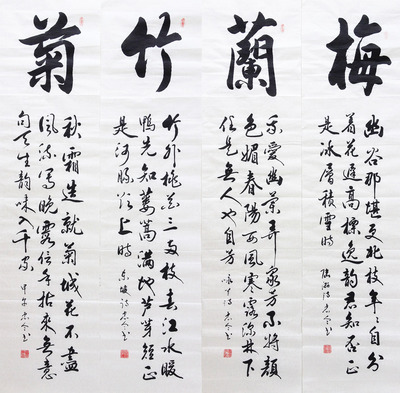 梅
幽谷那堪更北枝年々自分
着花遲高標逸韵君知否正
是冰層積雪時
陸游詩
蘭
愛幽蘭異衆芳不將顏
色媚春陽西風寒露深林下
任是無人也自芳
竹
竹外桃花三两枝春江水暖
鴨先知蔞蒿满地芦芽短正
是河豚欲上時
東坡詩
菊
秋霜造就菊城花不盡
風流寫晚霞信手拈來無意
句天生韵味入千家
甲午